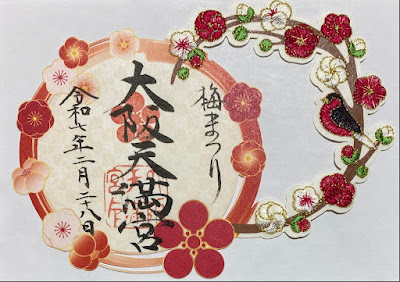 梅まつり
大阪天満宮
令和七年二月二十八日